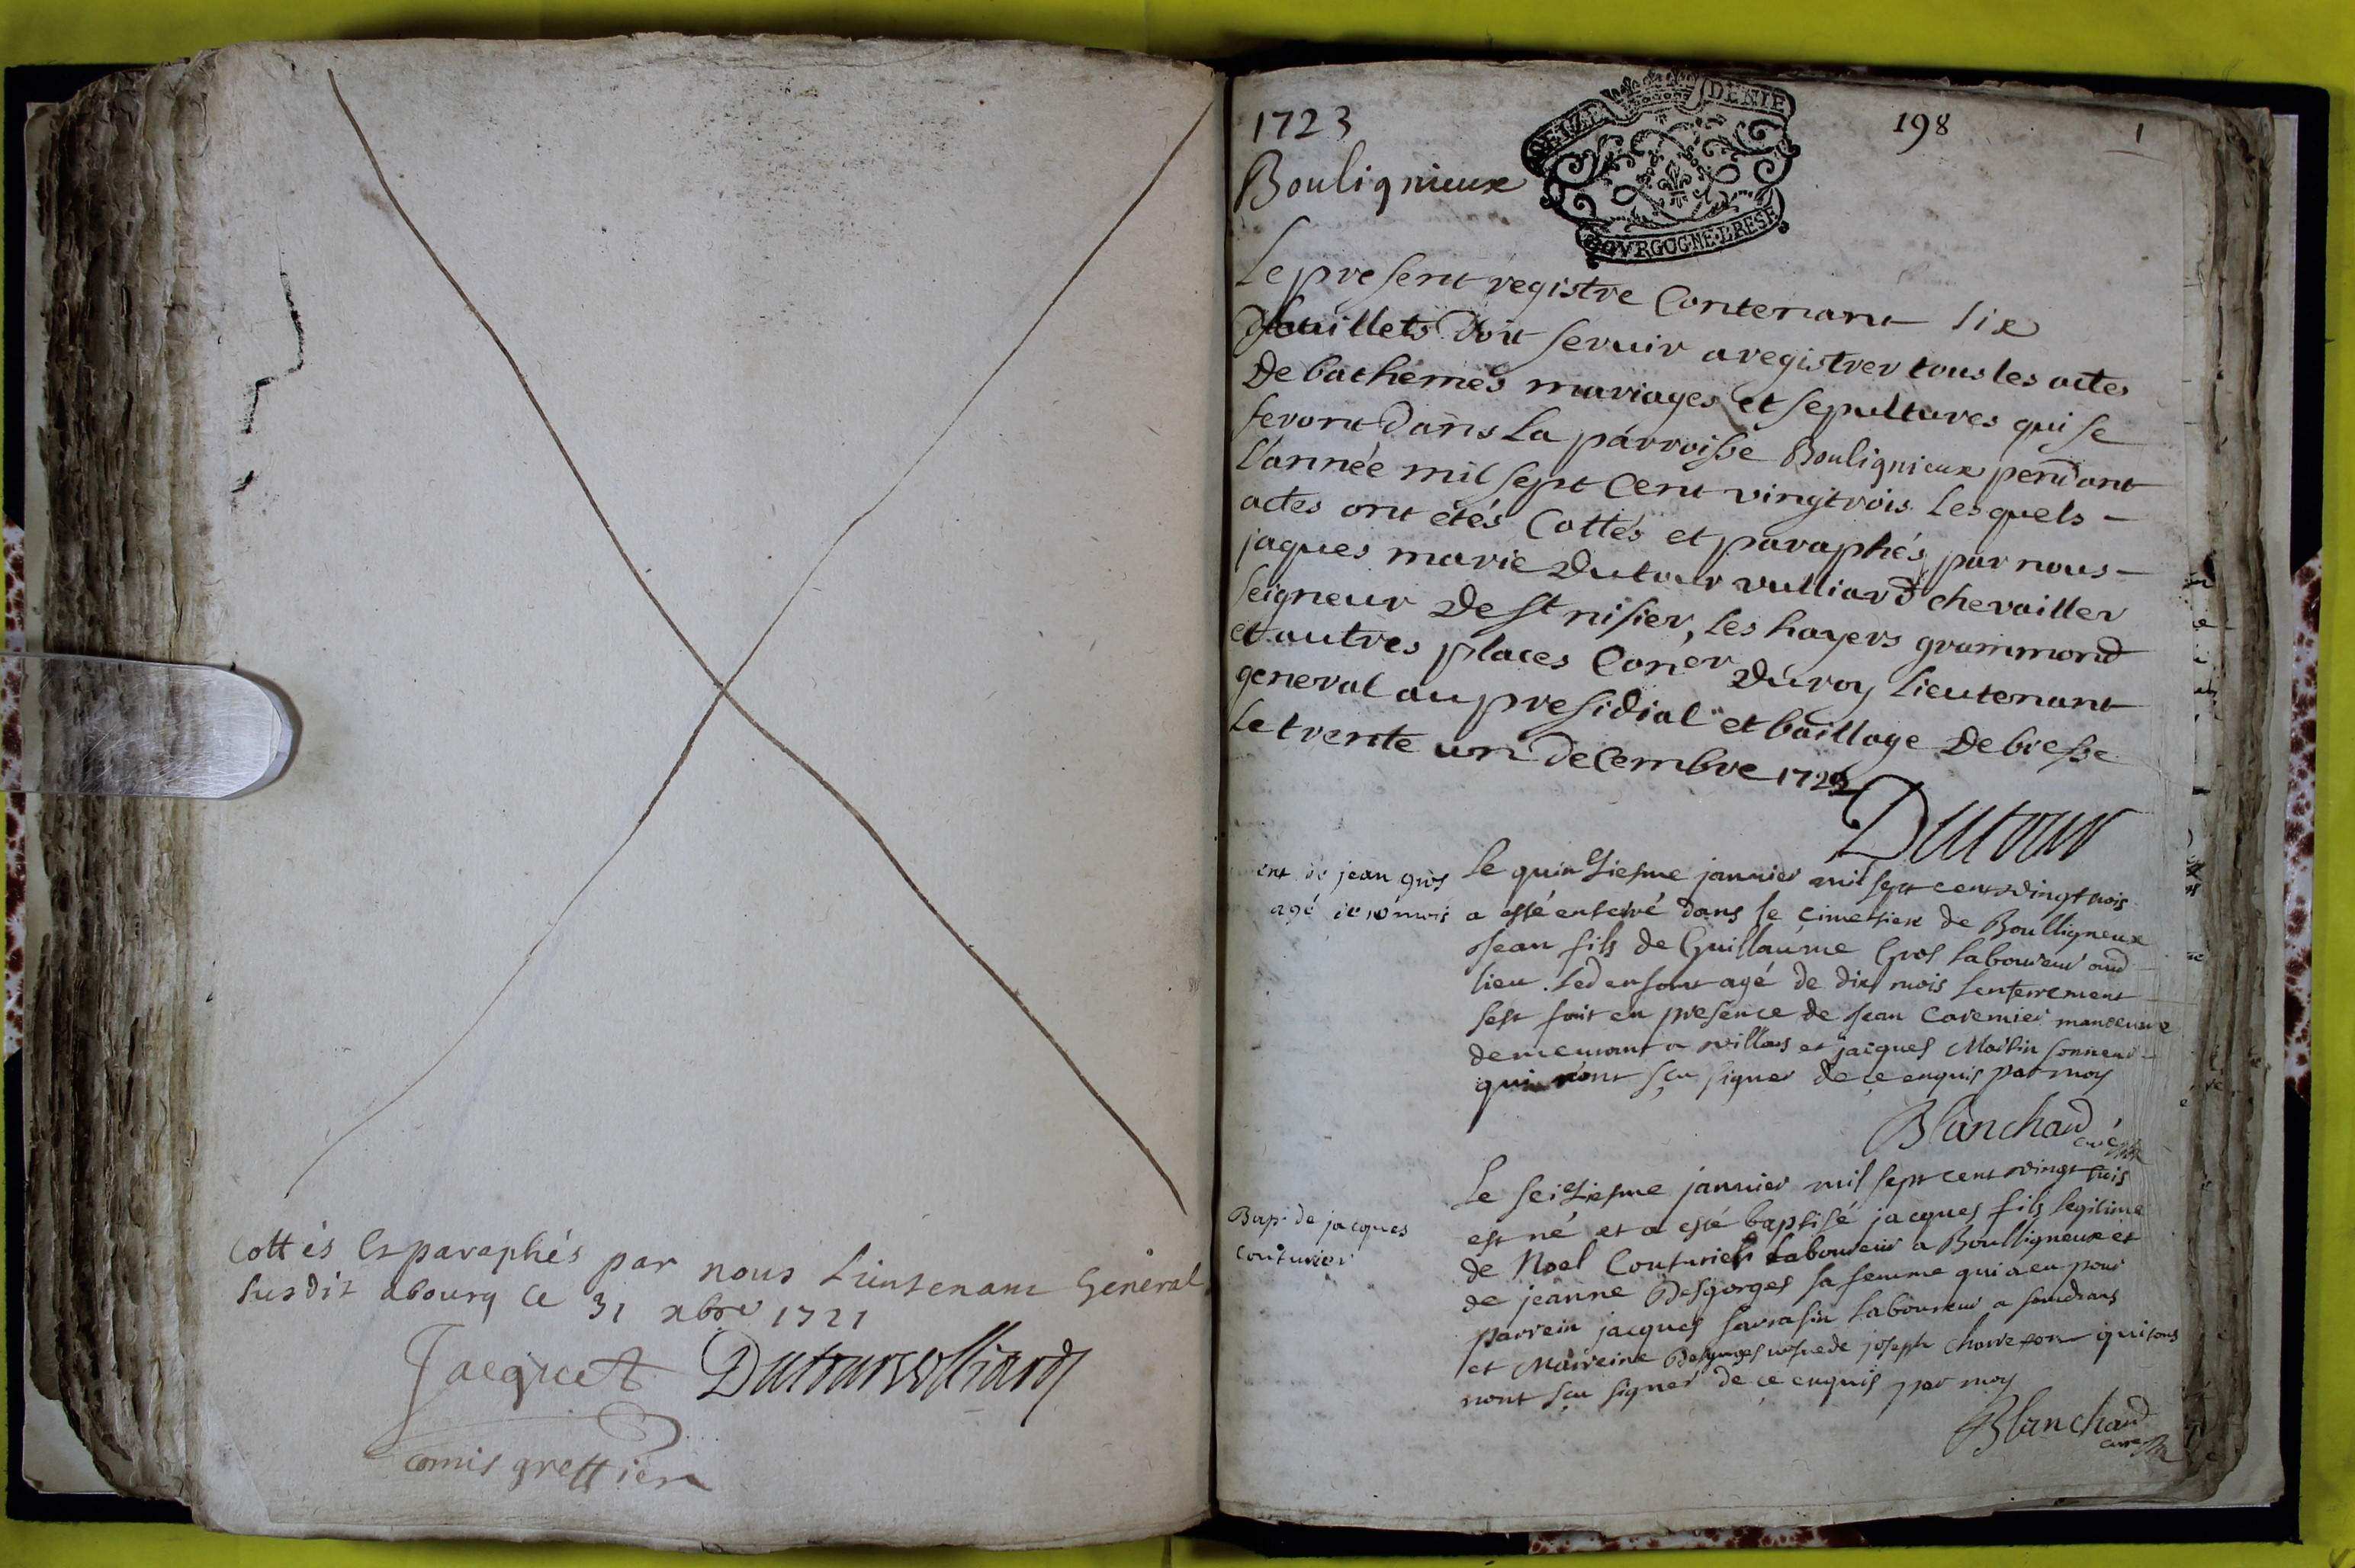 Cottés et paraphés par nous Lieutenant General
susdit a bourg ce 31 xbre 1721
Jacquet Dutourvulliard
comis greffier
1723
198
1
SEIZE DENIE
BOVRGOGNE·BRESE
Boulignieux
Le present registre Contenant six
feuillets doit servir a registrer tous les actes
De bathemes mariages et sepultures qui se
feront dans la parroisse Boulignieux pendant
l'année mil sept Cent vingtrois Les quels -
actes ont etés Cottés et paraphés par nous -
jaques marie Dutour vulliard chevailler
seigneur De St nisier, les hayers grammond
et autres places Coner Du roy Lieutenant
general au presidial et baillage De bresse
Le trente un decembre 1722
Dutour
ent de jean gros
agé de 10 mois
Le quinziesme janvier mil sept cent vingt trois
a esté enterré dans le cimetiere de Boulligneux
Jean fils de Guillaume Gros laboureur aud
lieu. Led enfant agé de dix mois lenterrement
sest fait en presence de Jean manoeuvre
demeurant a villars et jacques Martin sonneur
qui n'ont sçu signer de ce enquis par moy
Blanchard curé
Bap. de jacques
couturier
Le seiziesme janvier mil sept cent vingt trois
est né et a esté baptisé jacques fils legitime
de Noel Couturier laboureur a Boulligneux et
de jeanne Desgorges sa femme qui a eu pour
parrein jacques sarrasin laboureur a sandrans
et Marreine Desgorges vefue de joseph qui tous
nont sçu signer de ce enquis par moy
Blanchard
curé